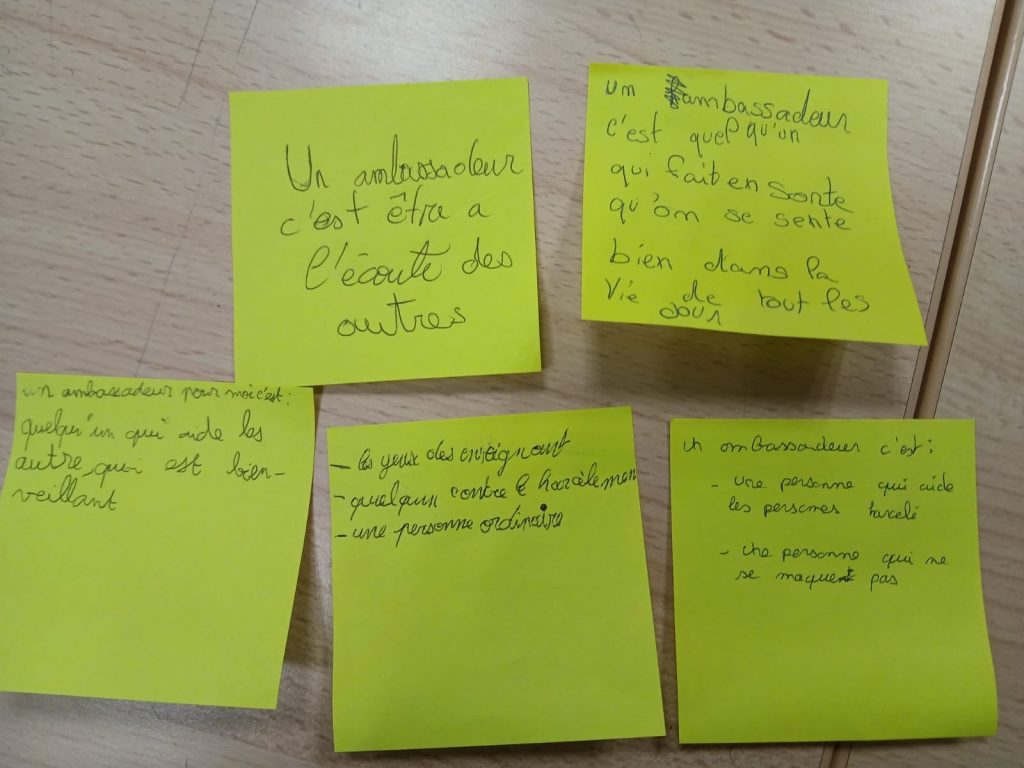 Un ambassadeur
c'est être a
l'écoute des
autres
un ambassadeur
c'est quelqu'un
qui fait en sorte
qu'on se sente
bien dans la
vie de tout les
jour
un ambassadeur pour moi c'est :
quelqu'un qui aide les
autre qui est bien-
veillant
- les yeux des enseignant
- quelqun contre le harcèlemen
- une personne ordinaire
un ambassadeur c'est :
- une personne qui aide
les personnes harcelé
- une personne qui ne
se maque pas